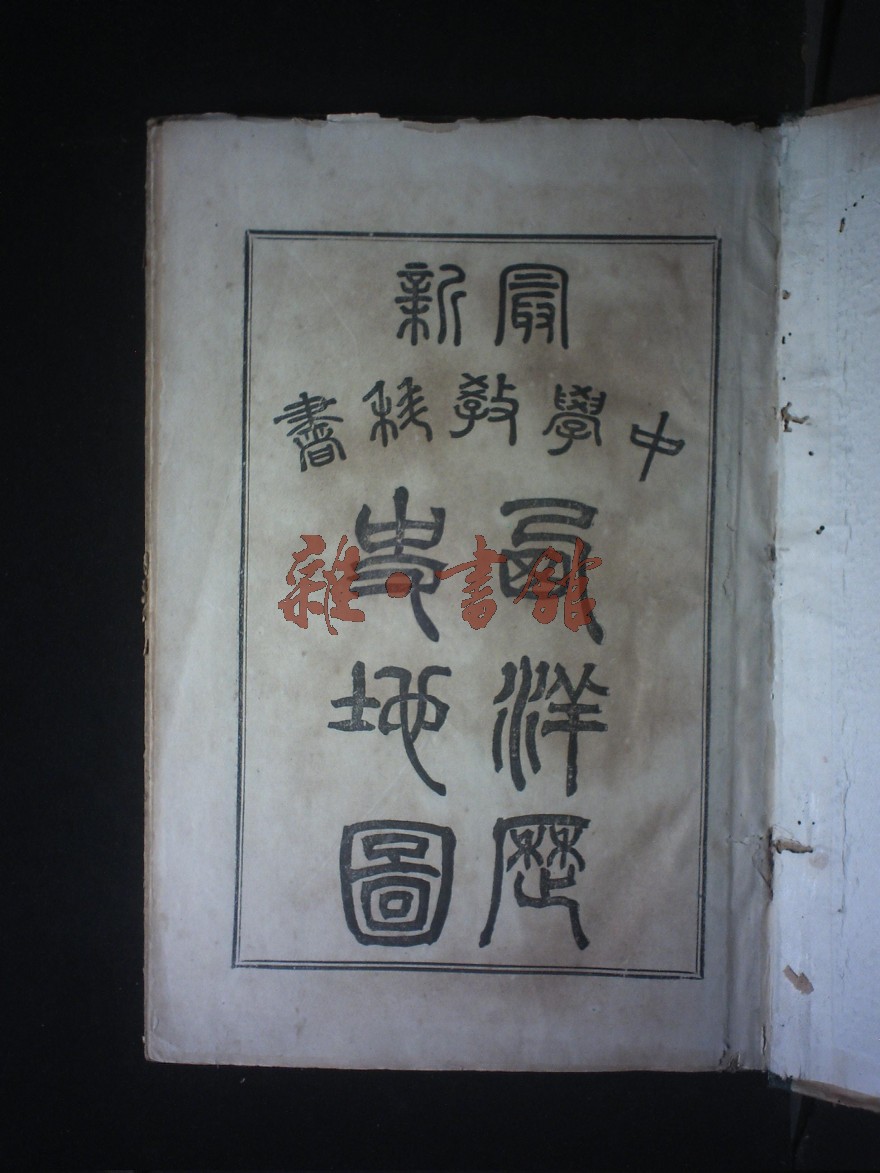 最新
中學教科書
西洋歷
史地圖
雜·書館